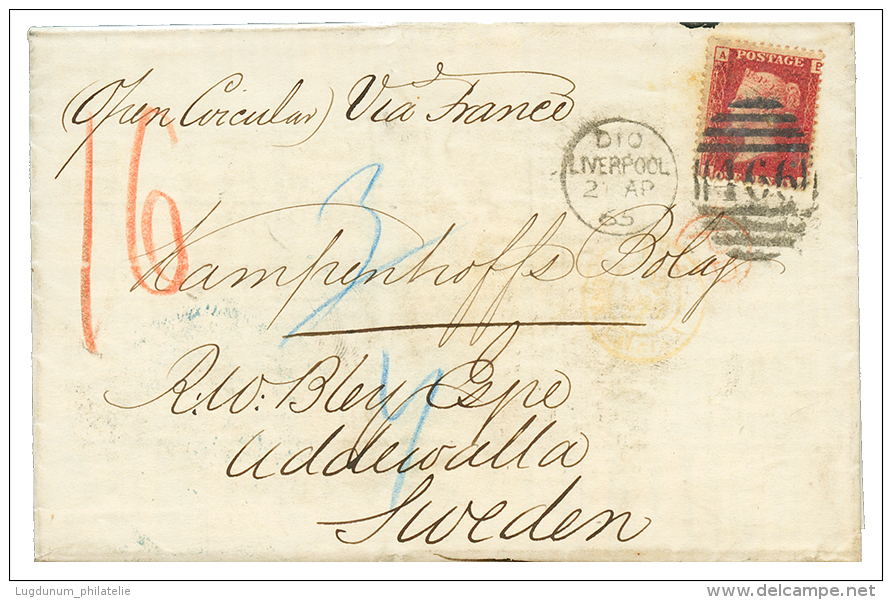 (Open Circular) Via France
POSTAGE
A
D10
LIVERPOOL
AP
65
466
16
3
Kampenhoffs Bolag
R: W: Bley Espe
Uddewalla
Sweden
Lugdunum_philatelie
delcampe.net